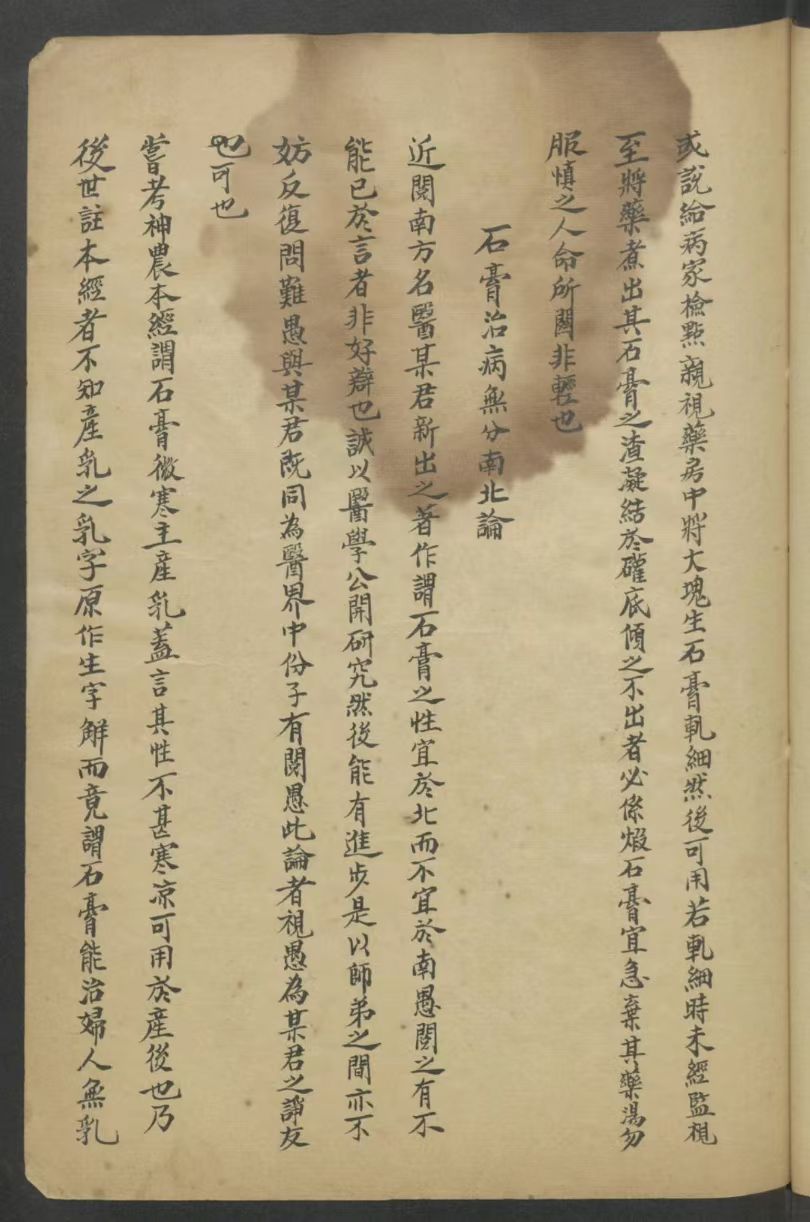 或說給病家檢點親視藥房中將大塊生石膏軋細然後可用若軋細時未經監視
至將藥煮出其石膏之渣凝結於礶底傾之不出者必係煅石膏宜急棄其藥湯勿
服慎之人命所關非輕也
石膏治病無分南北論
近閱南方名醫某君新出之著作謂石膏之性宜於北而不宜於南愚閱之有不
能已於言者非好辯也誠以醫學公開研究然後能有進步是以師弟之間亦不
妨反復問難愚與某君既同為醫界中份子有閱愚此論者視愚為某君之諍友
也可也
嘗考神農本經謂石膏微寒主產乳蓋言其性不甚寒凉可用於產後也乃
後世註本經者不知產乳之乳字原作生字解而竟謂石膏能治婦人無乳